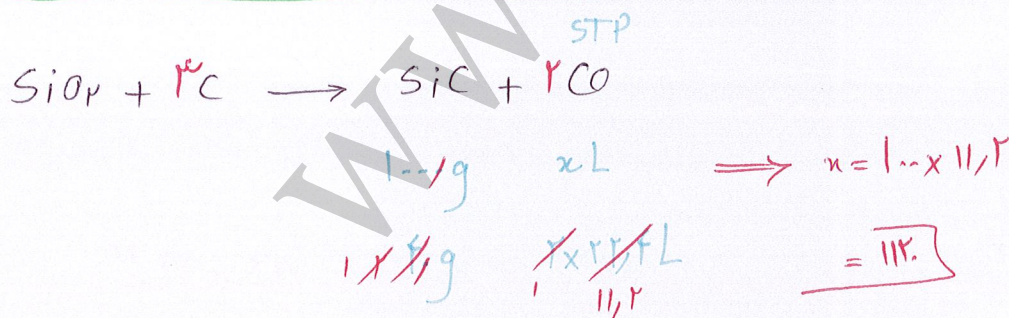 STP
SiO۲ + ۳C ⟶ SiC + ۲CO
۱۰۰۰g xL ⟹ x = ۱۰۰ × ۱۱,۲
۴۰g ۲×۲۲,۴L = ۱۱۲۰
۱ ۱۱,۲
WW